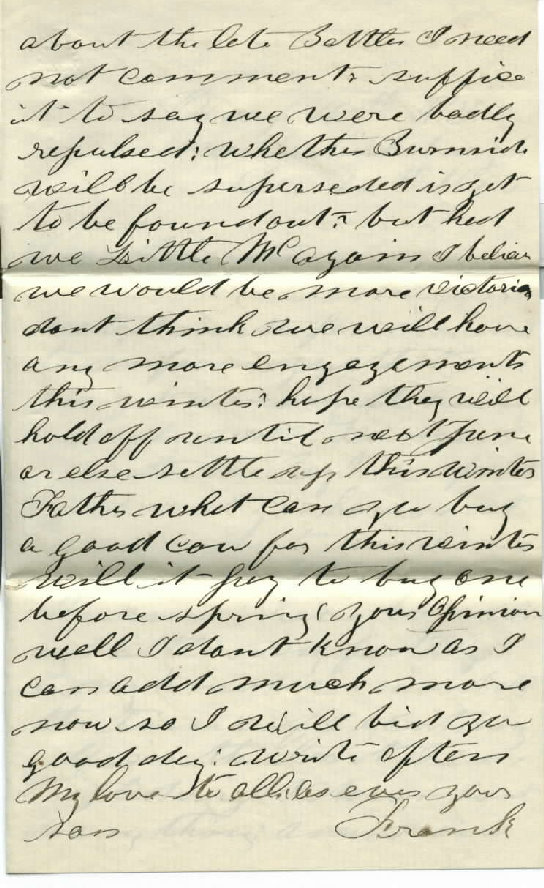 about the late Battles I need
not comment; suffice
it to say we were badly
repulsed; whether Burnside
will be superseded is yet
to be found out; but had
we Little Mc again I believe
we would be more victorious
dont think we will have
any more engagements
this winter; hope they will
hold off until next June
or else settle up this winter
Father what can you buy
a good cow for this winter
will it pay to buy one
before spring; your opinion
well I dont know as I
can add much more
now so I will bid you
good day; write often
My love to all; as ever your
son Frank